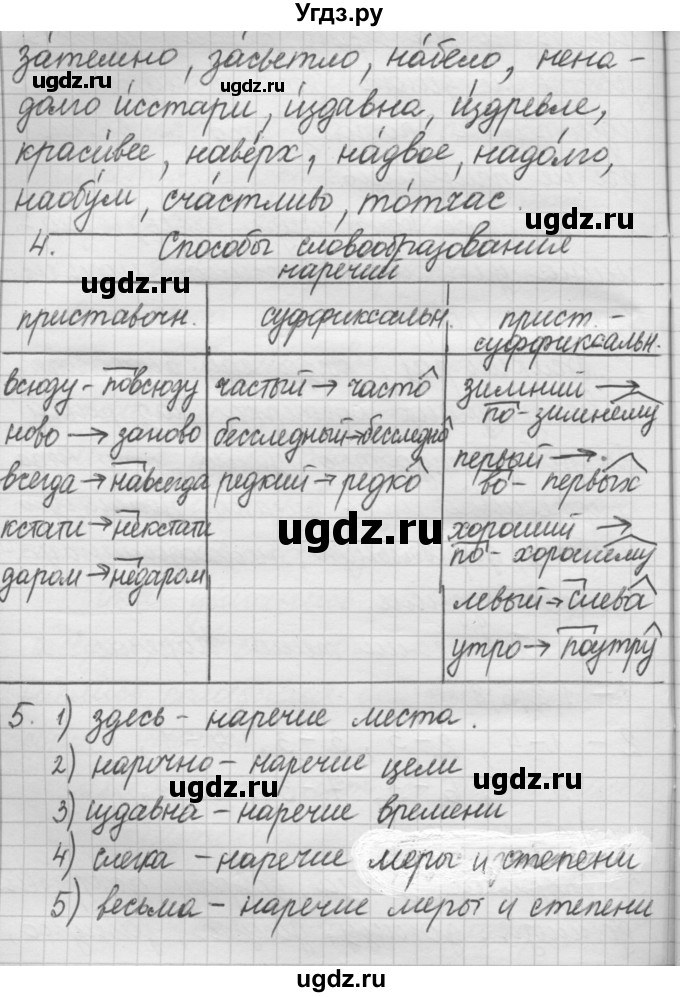 Угдз.ру
за́темно, за́светло, на́бело, нена-
долго и́сстари, и́здавна, и́здревле,
краси́вее, наве́рх, на́двое, надо́лго,
наобу́м, сча́стливо, то́тчас.
4. Способы словообразования
наречий
приставочн. суффиксальн. прист.-
суффиксальн.
всюду - повсюду частый → часто зимний →
по-зимнему
ново → заново бесследный → бесследно первый →
во-первых
всегда → навсегда редкий → редко хороший →
по-хорошему
кстати → некстати левый → слева
даром → недаром утро → поутру
5. 1) здесь - наречие места.
2) нарочно - наречие цели
3) издавна - наречие времени
4) слегка - наречие меры и степени
5) весьма - наречие меры и степени
ugdz.ru
ugdz.ru
ugdz.ru
ugdz.ru
ugdz.ru
ugdz.ru
ugdz.ru
ugdz.ru
ugdz.ru
ugdz.ru
ugdz.ru
ugdz.ru
ugdz.ru